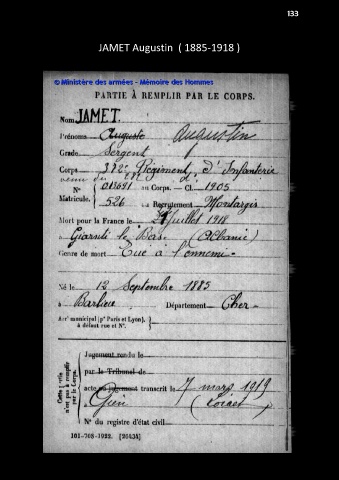 133
JAMET Augustin ( 1885-1918 )
© Ministère des armées - Mémoire des Hommes
PARTIE À REMPLIR PAR LE CORPS.
Nom JAMET.
Prénoms Auguste Augustin
Grade Sergent
Corps 372e Régiment d'Infanterie
venu du
N° 013691 au Corps. — Cl. 1905
Matricule. 526 au Recrutement Montargis
Mort pour la France le Juillet 1918
à Giarniti le Bas (Albanie)
Genre de mort Tué à l'ennemi
Né le 12 Septembre 1885
à Barlieu Département Cher
Arr' municipal (p' Paris et Lyon),
à défaut rue et N°.
Cette partie
n'est pas à remplir
par le Corps.
Jugement rendu le
par le Tribunal de
acte ou jugement transcrit le 7 mars 1919
à Gien (Loiret)
N° du registre d'état civil
101-708-1922. [26434]